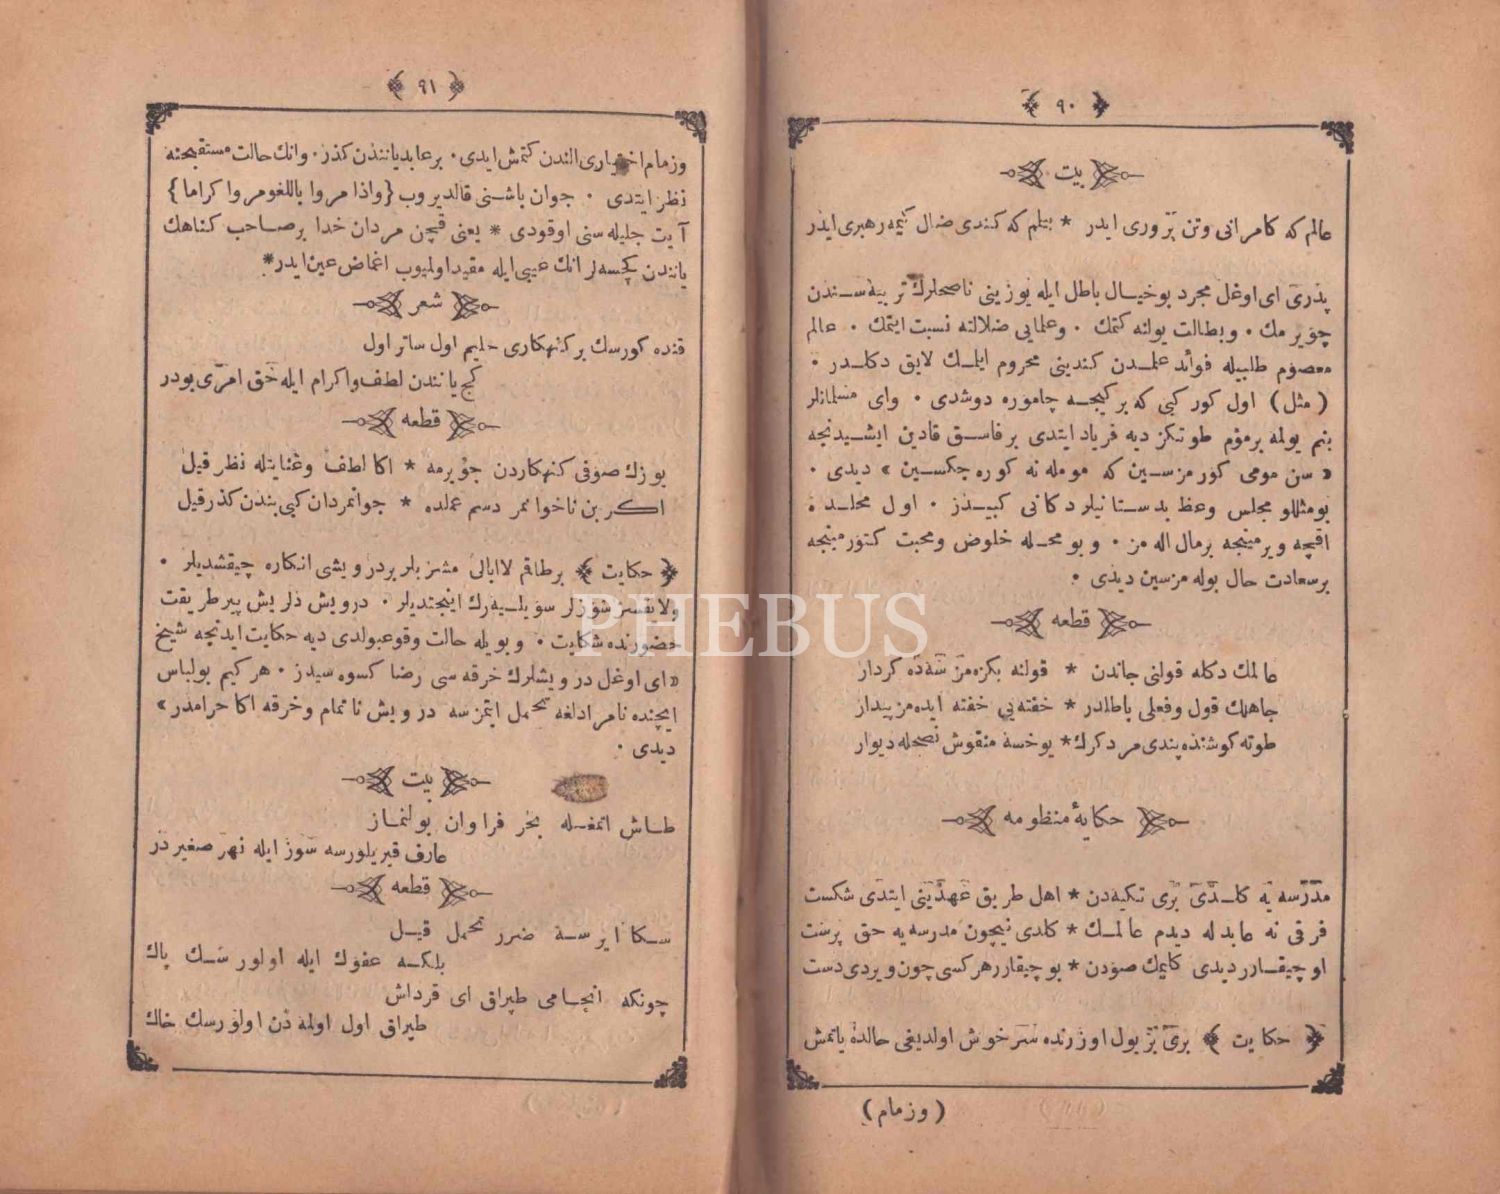 ﴿ ٩٠ ﴾
بيت
عالم كه كامرانى وتن پرورى ايدر * بيلم كه كندى ضال كيمه رهبرى ايدر
پدرى اى اوغل مجرد بو خيال باطل ايله يوزينى ناصحلرك تربيه سندن
چوير مك ٠ و بطالت يولنه كتمك ٠ وعلمايى ضلالته نسبت ايتمك ٠ عالم
معصوم طلبيله فوائد علمدن كندينى محروم ايلمك لايق دكلدر ٠
(مثل) اول كور كبى كه بر كيجه چاموره دوشدى ٠ واى مسلمانلر
بنم يولمه برموم طوتكز ديه فرياد ايتدى بر فاسق قادين ايشيدنجه
« سن مومى كورمزسين كه مومله نه كوره جكسين » ديدى ٠
بومثللو مجلس وعظ بدستانيلر دكانى كبيدر ٠ اول محلده
اقچه ويرمينجه بر مال اله مز ٠ و بو محله خلوص ومحبت كتورمينجه
بر سعادت حال بوله مزسين ديدى ٠
قطعه
عالمك دكله قولنى جاندن * قولنه بكزه مز سه ده كردار
جاهلك قول وفعلى باطلدر * خفته يى خفته ايده مز بيدار
طوته كوشنده پندى مرد كرك * يوخسه منقوش نصحله ديوار
حكايۀ منظومه
مدرسه يه كلدى برى تكيه دن * اهل طريق عهدينى ايتدى شكست
فرقى نه عابدله ديدم عالمك * كلدى نيچون مدرسه يه حق پرست
او چيقارر ديدى كليمك صودن * بو چيقارر هر كسى چون ويردى دست
﴿ حكايت ﴾ برى بر يول اوزرنده سرخوش اولديغى حالده ياتمش
(وزمام)
﴿ ٩١ ﴾
وزمام اختيارى الندن كتمش ايدى ٠ بر عابد ياننذن كذر ٠ وانك حالت مستقبحنه
نظر ايتدى ٠ جوان باشنى قالديروب {واذا مروا باللغو مروا كراما}
آيت جليله سنى اوقودى * يعنى قچن مردان خدا بر صاحب كناهك
يانندن كچسه لر انك عيبى ايله مقيد اولميوب اغماض عين ايدر *
شعر
قنده كورسك بر كنهكارى حليم اول ساتر اول
كچ يانندن لطف واكرام ايله حق امرى بودر
قطعه
يوزك صوفى كنهكاردن چويرمه * اكا لطف وعنايتله نظر قيل
اكر بن ناجوانمردسم عملده * جوانمردان كبى بندن كذر قيل
﴿ حكايت ﴾ برطاقم لاابالى مشربلر بر درويشى انكاره چيقشديلر ٠
ولايقسز سوزلر سويليه رك اينجتديلر ٠ درويش دلريش پير طريقت
حضورنده شكايت ٠ و بويله حالت وقوعبولدى ديه حكايت ايدنجه شيخ
« اى اوغل درويشلرك خرقه سى رضا كسوه سيدر ٠ هر كيم بو لباس
ايچنده نامرادلغه تحمل ايتمزسه درويش ناتمام وخرقه اكا حرامدر »
ديدى ٠
بيت
طاش اتمغله بحر فراوان بولنماز
عارف قيريلورسه سوز ايله نهر صغير در
قطعه
سكا ايرسه ضرر تحمل قيل
بلكه عفوك ايله اولورسك پاك
چونكه انجامى طپراق اى قرداش
طپراق اول اولمه دن اولورسك خاك
PHEBUS